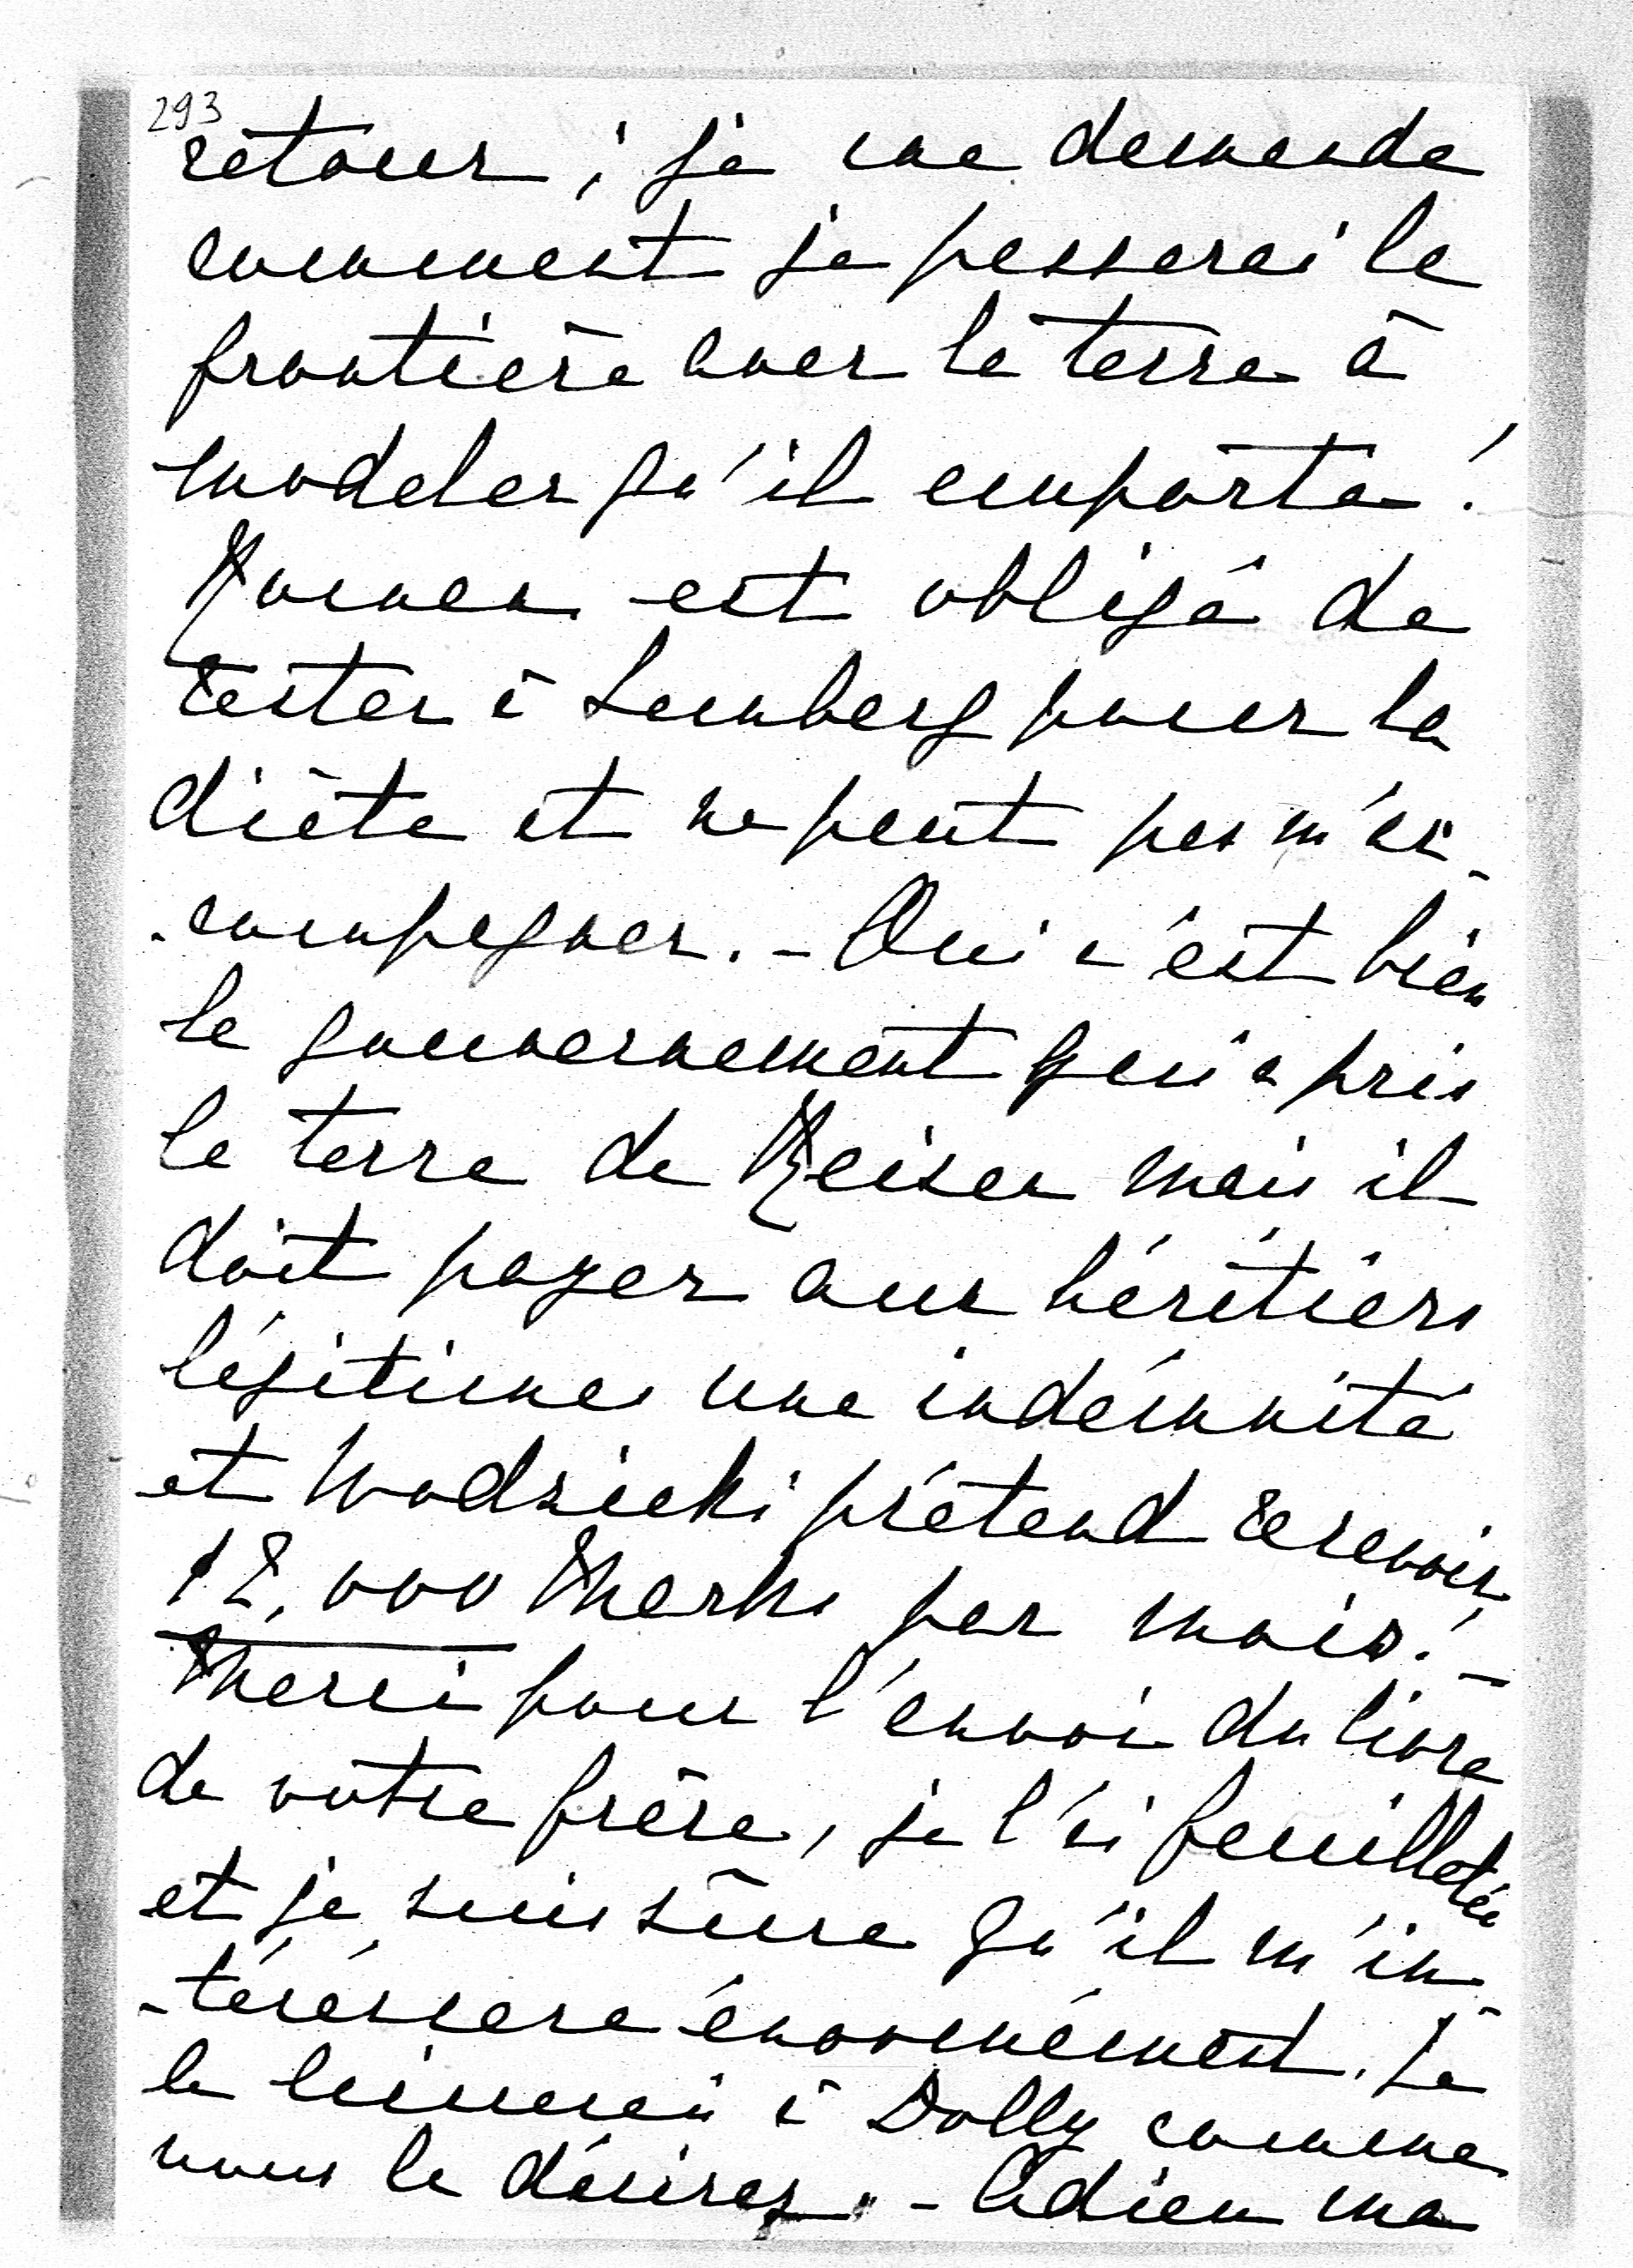 293
retour ; je me demande
comment je passerai la
frontière avec la terre à
modeler qu'il emporte !
Roman est obligé de
rester à Lemberg pour la
diète et ne peut pas m'ac-
-compagner. - Oui c'est bien
le gouvernement qui a pris
la terre de Reisen mais il
doit payer aux héritiers
légitimes une indémnité
et Wodzicki prétend recevoir
12,000 Marks par mois ! -
Merci pour l'envoi du livre
de votre frère, je l'ai feuilleté
et je suis sûre qu'il m'in-
-téréssera énormément. Je
le laisserai à Dolly comme
vous le désirez. - Adieu ma